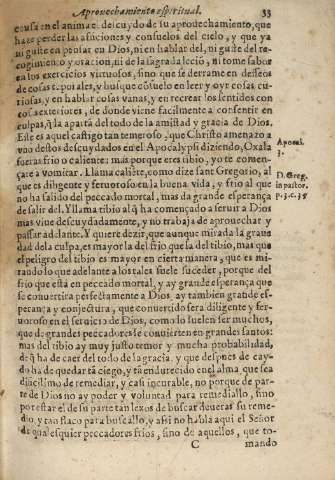 Aprouechamiento espiritual. 33
causa en el anima el descuydo de su aprouechamiento, que
haze perder las aficiones y consuelos del cielo, y que ya
ni guste en pensar en Dios, ni en hablar del, ni guste del re-
cogimiento y oracion, ni de la sagrada lecciõ, ni tome sabor
en los exercicios virtuosos, sino que se derrame en desseos
de cosas tẽporales, y busque cõsuelo en leer y oyr cosas cu-
riosas, y en hablar cosas vanas, y en recrear los sentidos con
cosas exteriores, de donde viene facilmente a consentir en
culpas, q̃ la aparta del todo de la amistad y gracia de Dios.
Este es aquel castigo tan temeroso, que Christo amenazo a
vno destos descuydados en el Apocalypsi diziendo, Oxala
fueras frio o caliente: mas porque eres tibio, yo te comen-
çare a vomitar. Llama caliẽte, como dize sant Gregorio, al
que es diligente y feruoroso en la buena vida, y frio al que
no ha salido del peccado mortal, mas da grande esperança
de salir del. Y llama tibio al q̃ ha començado a seruir a Dios
mas viue descuydadamente, y no trabaja de aprouechar y
passar adelante. Y quiere dezir, que aunque mirada la graue
dad dela culpa, es mayor la del frio que la del tibio, mas que
el peligro del tibio es mayor en cierta manera, que es mi-
rando lo que adelante a los tales suele suceder, porque del
frio que está en peccado mortal, y ay grande esperança que
se conuertira perfectamente a Dios, ay tambien grande es-
perança y conjectura, que conuertido sera diligente y fer-
uoroso en el seruicio de Dios, como lo suelen ser muchos,
que de grandes peccadores se conuierten en grandes santos:
mas del tibio ay muy justo temor y mucha probabilidad,
de q̃ ha de caer del todo de la gracia, y que despues de cay-
do ha de quedar tã ciego, y tã endurecido en el alma que sea
dificilimo de remediar, y casi incurable, no porque de par-
te de Dios no ay poder y voluntad para remediallo, sino
por estar el de su parte tan lexos de buscar deueras su reme-
dio, y tan flaco para buscallo, y assi no habla aqui el Señor
de qualesquier peccadores frios, sino de aquellos, que to-
C mando
Apocal.
3.
D. Greg.
in pastor.
p. 3. c. 35